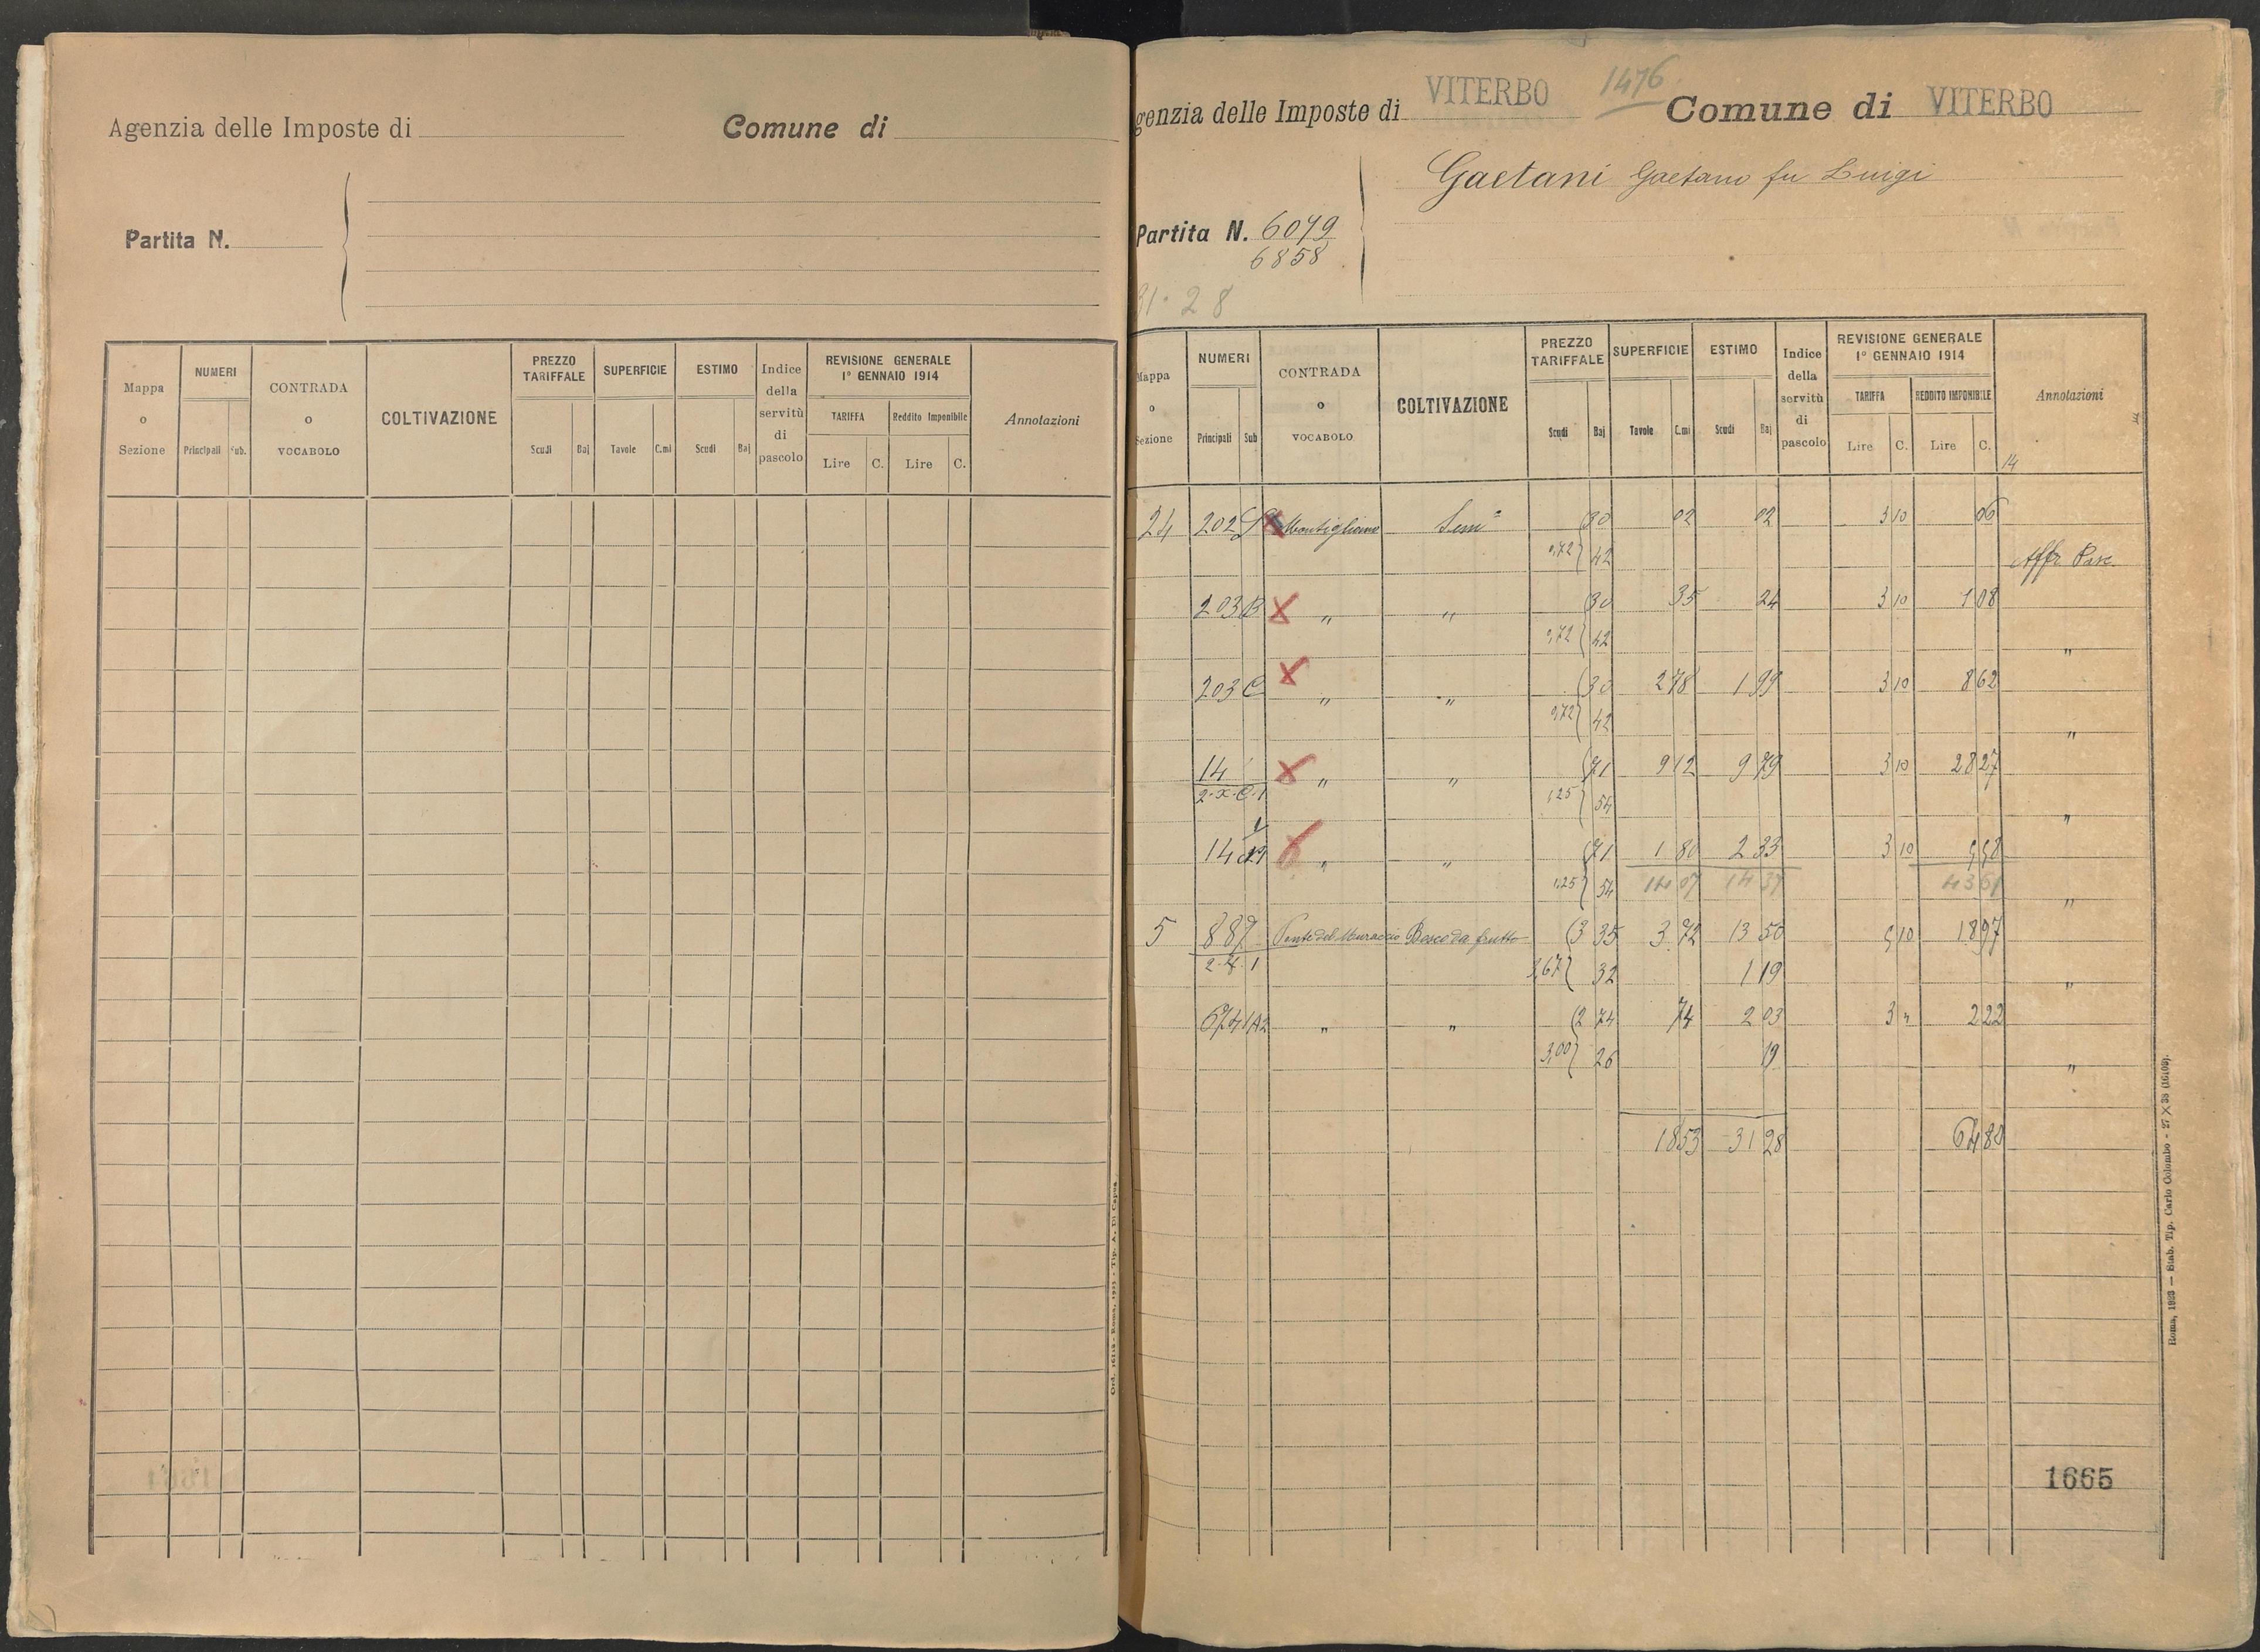 Agenzia delle Imposte di
Comune di
Partita N.
Mappa o Sezione
NUMERI
Principali Sub.
CONTRADA o VOCABOLO
COLTIVAZIONE
PREZZO TARIFFALE
Scudi Baj
SUPERFICIE
Tavole C.mi
ESTIMO
Scudi Baj
Indice della servitù di pascolo
REVISIONE GENERALE
1° GENNAIO 1914
TARIFFA
Lire C.
Reddito Imponibile
Lire C.
Annotazioni
genzia delle Imposte di VITERBO 1476 Comune di VITERBO
Gaetani Gaetano fu Luigi
Partita N. 6079
6858
31·28
Mappa o Sezione
NUMERI
Principali Sub
CONTRADA o VOCABOLO
COLTIVAZIONE
PREZZO TARIFFALE
Scudi Baj
SUPERFICIE
Tavole C.mi
ESTIMO
Scudi Baj
Indice della servitù di pascolo
REVISIONE GENERALE
1° GENNAIO 1914
TARIFFA
Lire C.
REDDITO IMPONIBILE
Lire C.
Annotazioni
14
24 202 Montigliano Sem° 30 02 02 3 10 06
0,72 42 Affr. Pasc.
203 B X " " 30 35 24 3 10 1 08
0,72 42 "
203 C X " " 30 2 78 1 99 3 10 8 62
0,72 42 "
14 X " " 71 9 12 9 79 3 10 28 27
2·X·C·1 1,25 54 "
14 " " 71 1 80 2 33 3 10 5 58
1,25 54 14 07 14 37 43 61 "
5 887 Ponte del Muraccio Bosco da frutto 3 35 3 72 13 50 5 10 18 97
3,67 32 1 19 "
" " 2 74 74 2 03 3 " 2 22
3,00 26 19 "
18 53 31 28 64 80
1665
Roma, 1923 — Stab. Tip. Carlo Colombo - 27 X 38 (16109).